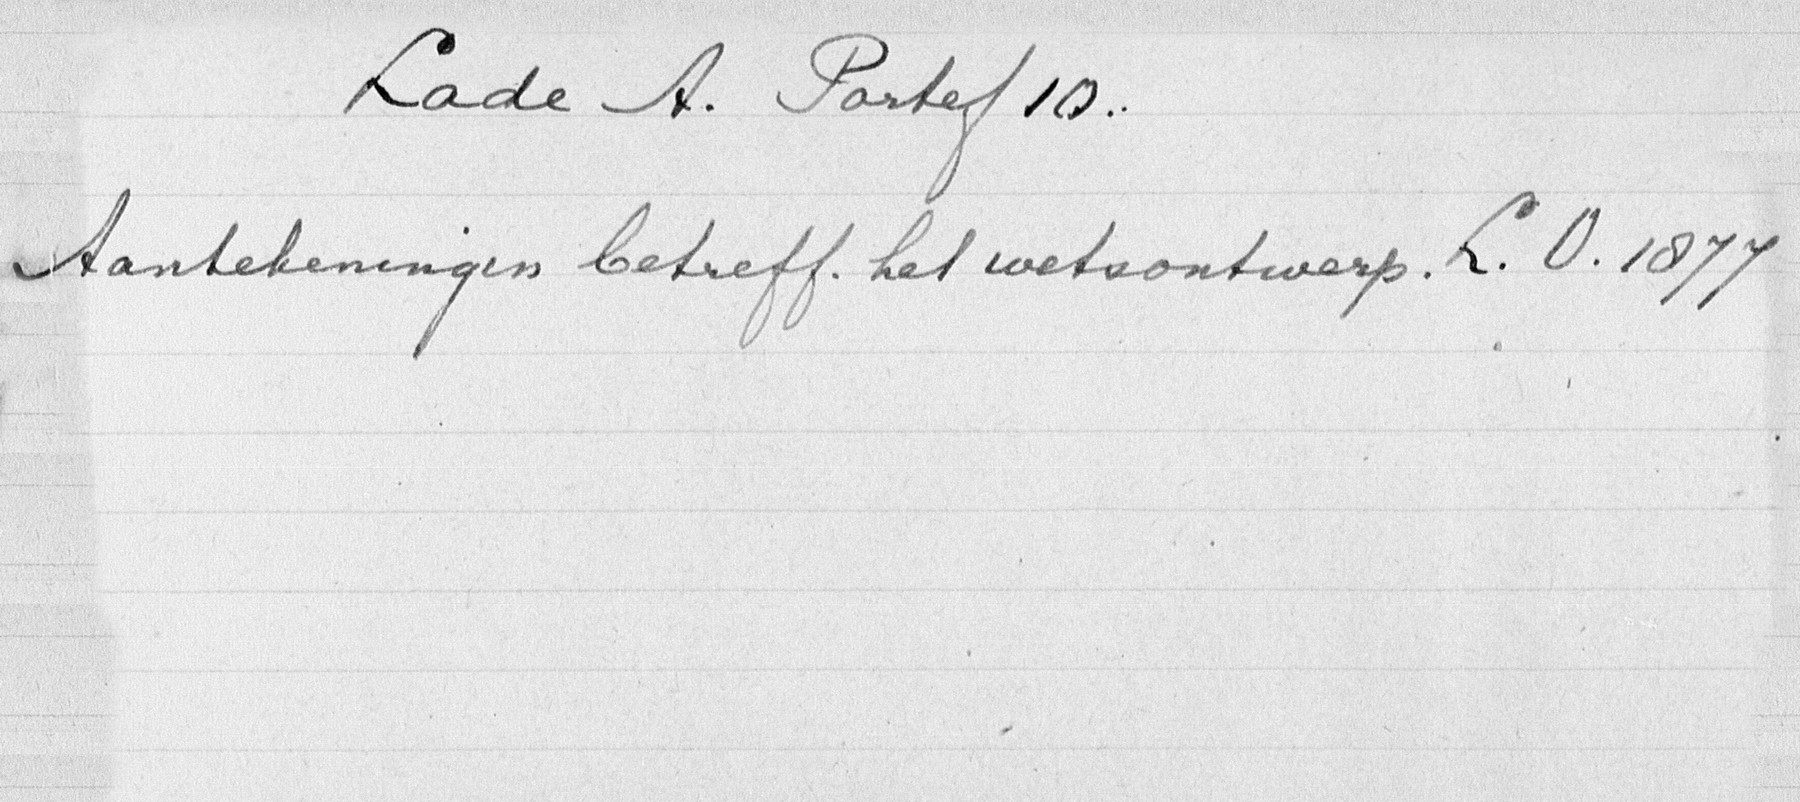 Lade A. Portef 10.
Aantekeningen betreff. het wetsontwerp. L. O. 1877